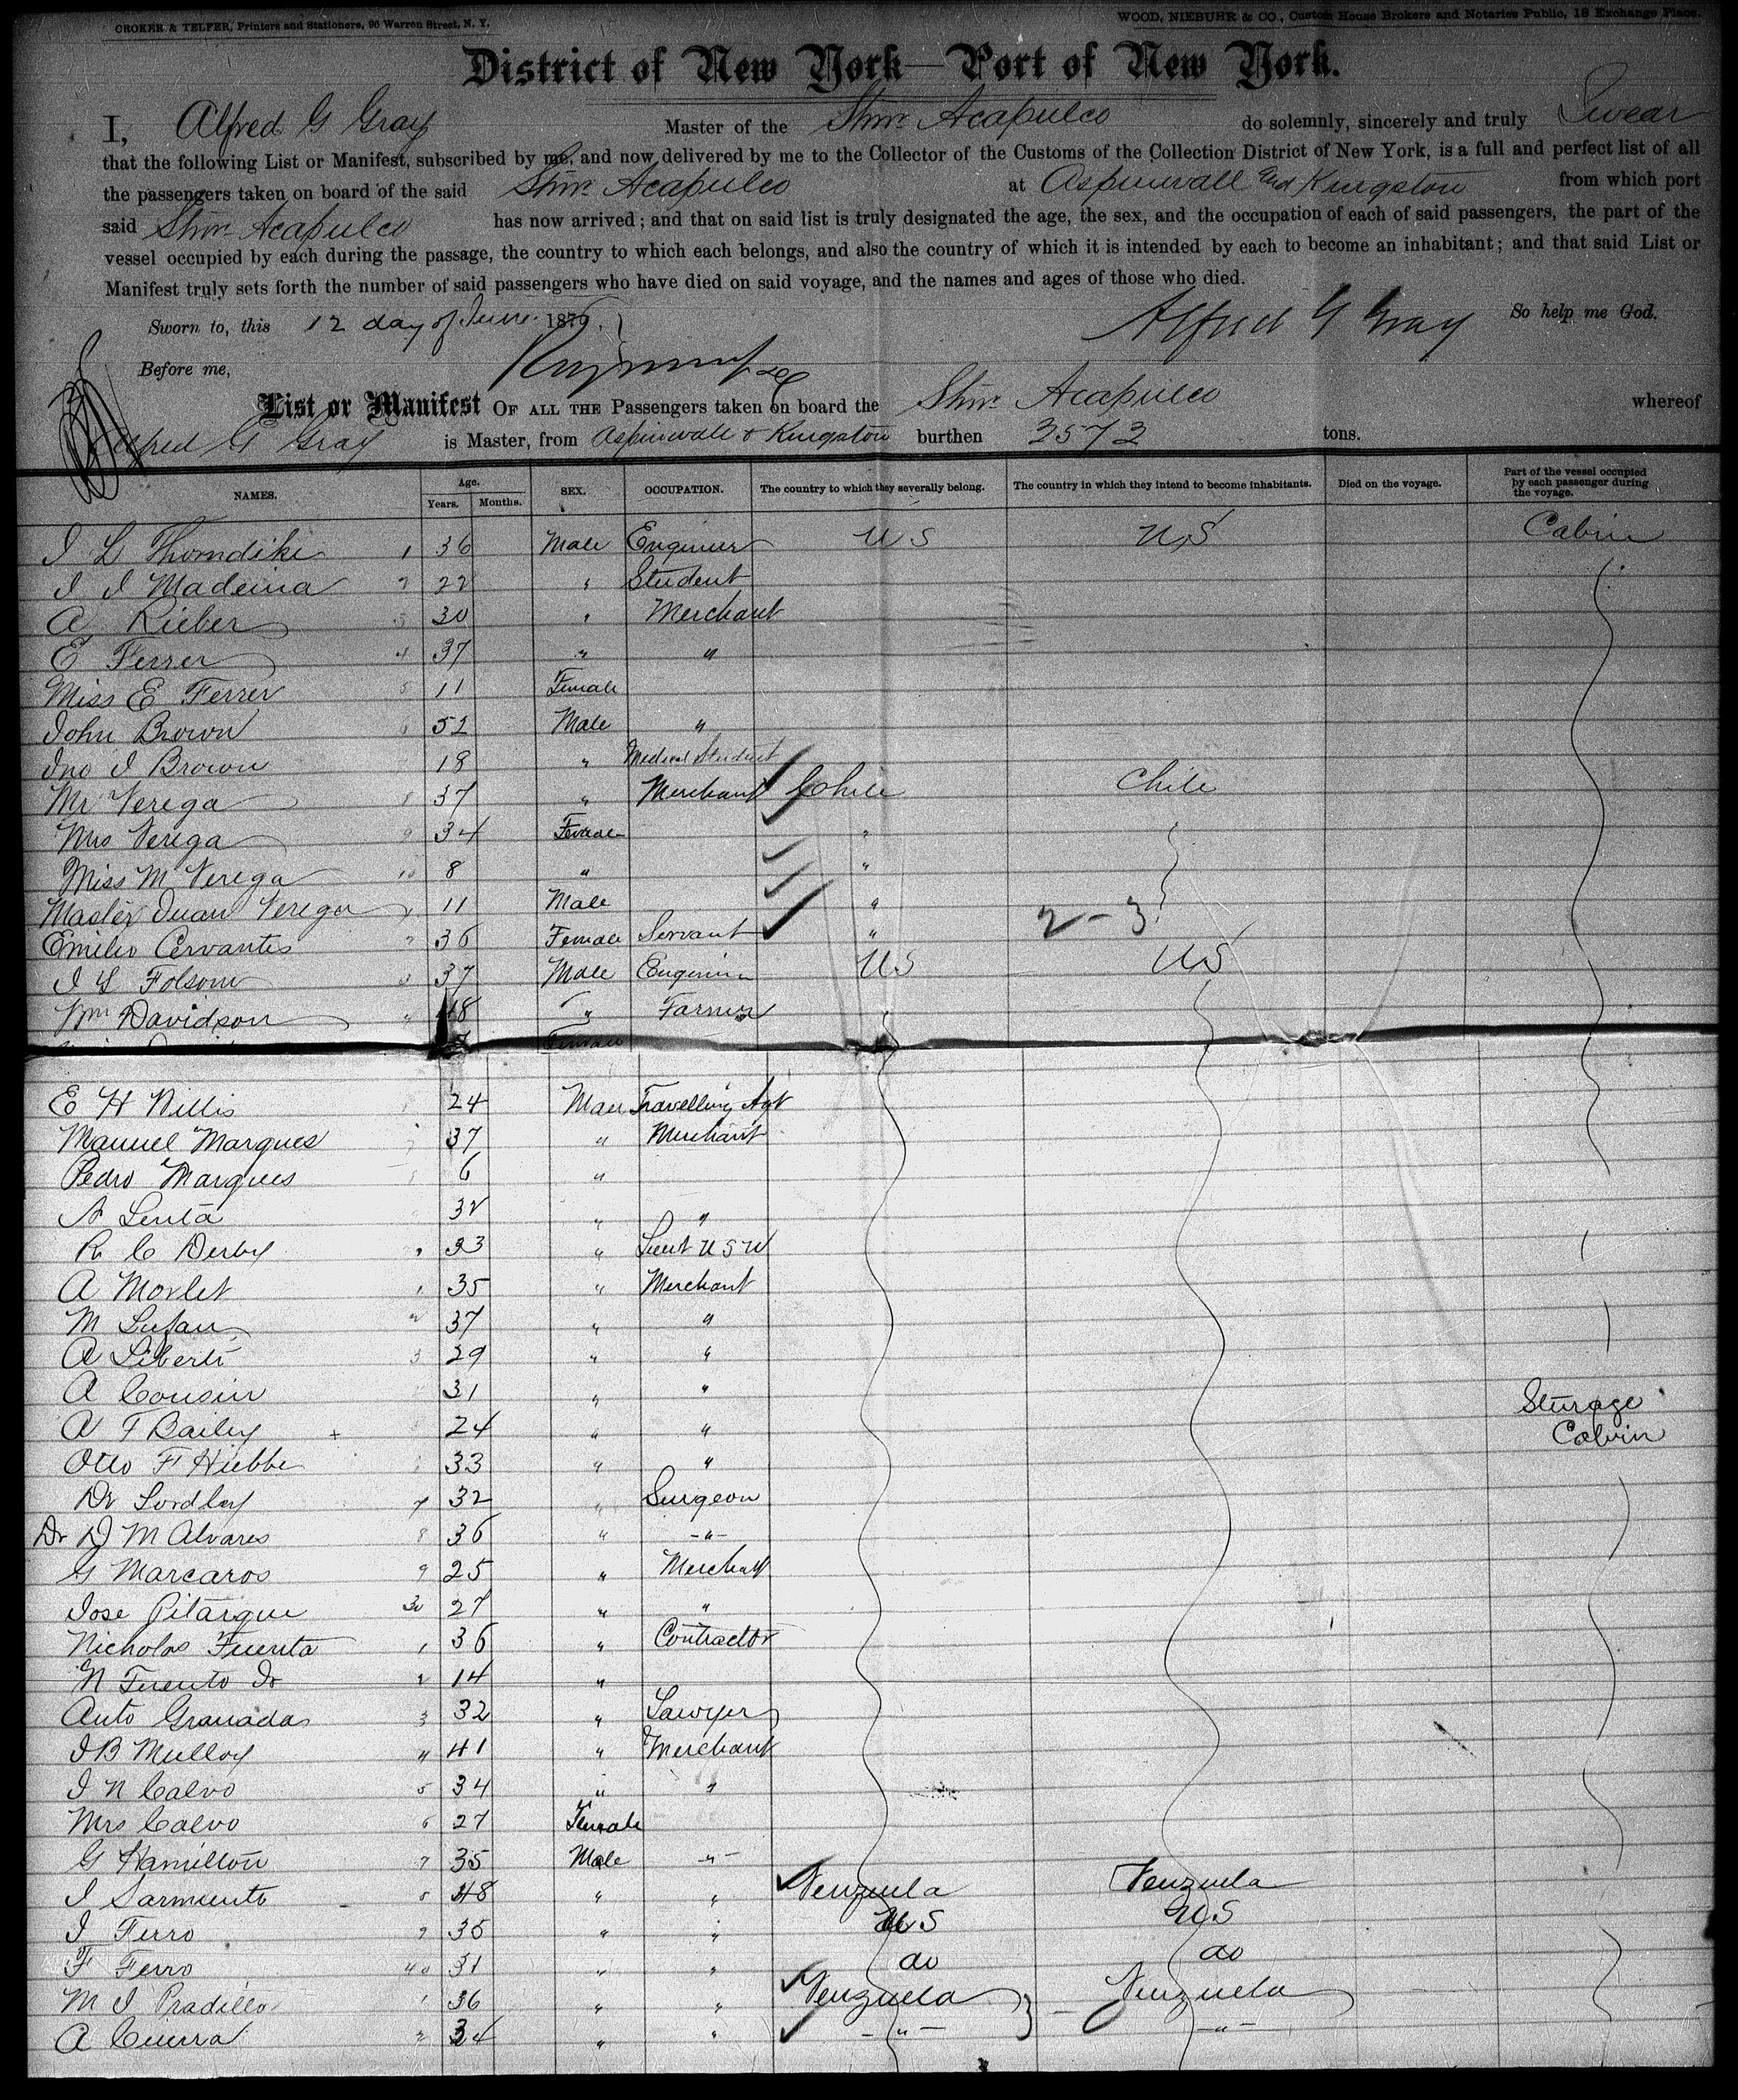 CROKER & TELFER, Printers and Stationers, 96 Warren Street, N. Y.
WOOD, NIEBUHR & CO., Custom House Brokers and Notaries Public, 18 Exchange Place.
District of New York—Port of New York.
I, Alfred G Gray Master of the Stmr Acapulco do solemnly, sincerely and truly Swear
that the following List or Manifest, subscribed by me, and now delivered by me to the Collector of the Customs of the Collection District of New York, is a full and perfect list of all
the passengers taken on board of the said Stmr Acapulco at Aspinwall and Kingston from which port
said Stmr Acapulco has now arrived; and that on said list is truly designated the age, the sex, and the occupation of each of said passengers, the part of the
vessel occupied by each during the passage, the country to which each belongs, and also the country of which it is intended by each to become an inhabitant; and that said List or
Manifest truly sets forth the number of said passengers who have died on said voyage, and the names and ages of those who died.
Sworn to, this 12 day of June 1876. Alfred G Gray So help me God.
Before me,
List or Manifest OF ALL THE Passengers taken on board the Stmr Acapulco whereof
Alfred G Gray is Master, from Aspinwall & Kingston burthen 2572 tons.
NAMES. Age. Years. Months. SEX. OCCUPATION. The country to which they severally belong. The country in which they intend to become inhabitants. Died on the voyage. Part of the vessel occupied by each passenger during the voyage.
I L Thorndike 1 36 Male Engineer US US Cabin
I I Madeina 2 22 " Student
A Rieber 3 30 " Merchant
E Ferrer 4 37 " "
Miss E Ferrer 5 11 Female
John Brown 6 52 Male "
Jno I Brown 18 " Medical Student
Mr Verega 8 37 " Merchant Chile Chile
Mrs Verega 9 34 Female "
Miss M Verega 10 8 " "
Master Juan Verega 11 Male " 2-3
Emilio Cervantis 2 36 Female Servant "
I L Folsom 3 37 Male Engineer US US
Wm Davidson 4 48 " Farmer
Female
E H Willis 24 Male Travelling Agt
Manuel Marques 37 " Merchant
Pedro Marques 6 "
A Lenta 32 " "
R C Derby 33 " Lieut U S N
A Morlet 1 35 " Merchant
M Lufau 2 37 " "
A Liberti 3 29 " "
A Cousin 31 " " Sturage
A F Bailey + 24 " " Cabin
Otto F Hiebbe 33 " "
Dr Lordley 7 32 " Surgeon
Dr D M Alvares 8 36 " -"-
G Marcaros 9 25 " Merchant
Jose Pitarque 30 27 " "
Nicholas Fuenta 1 36 " Contractor
N Fuento Jr 2 14 "
Anto Granadas 3 32 " Lawyer
I B Mulloy 4 41 " Merchant
I N Calvo 5 34 " "
Mrs Calvo 6 27 Female
G Hamilton 7 35 Male -"-
I Sarmiento 8 48 " " Venzuela Venzuela
I Ferro 9 35 " " US US
F Ferro 40 31 " " do do
M I Pradillo 1 36 " " Venzuela Venzuela
A Cuerra 2 34 " " -"- -"-